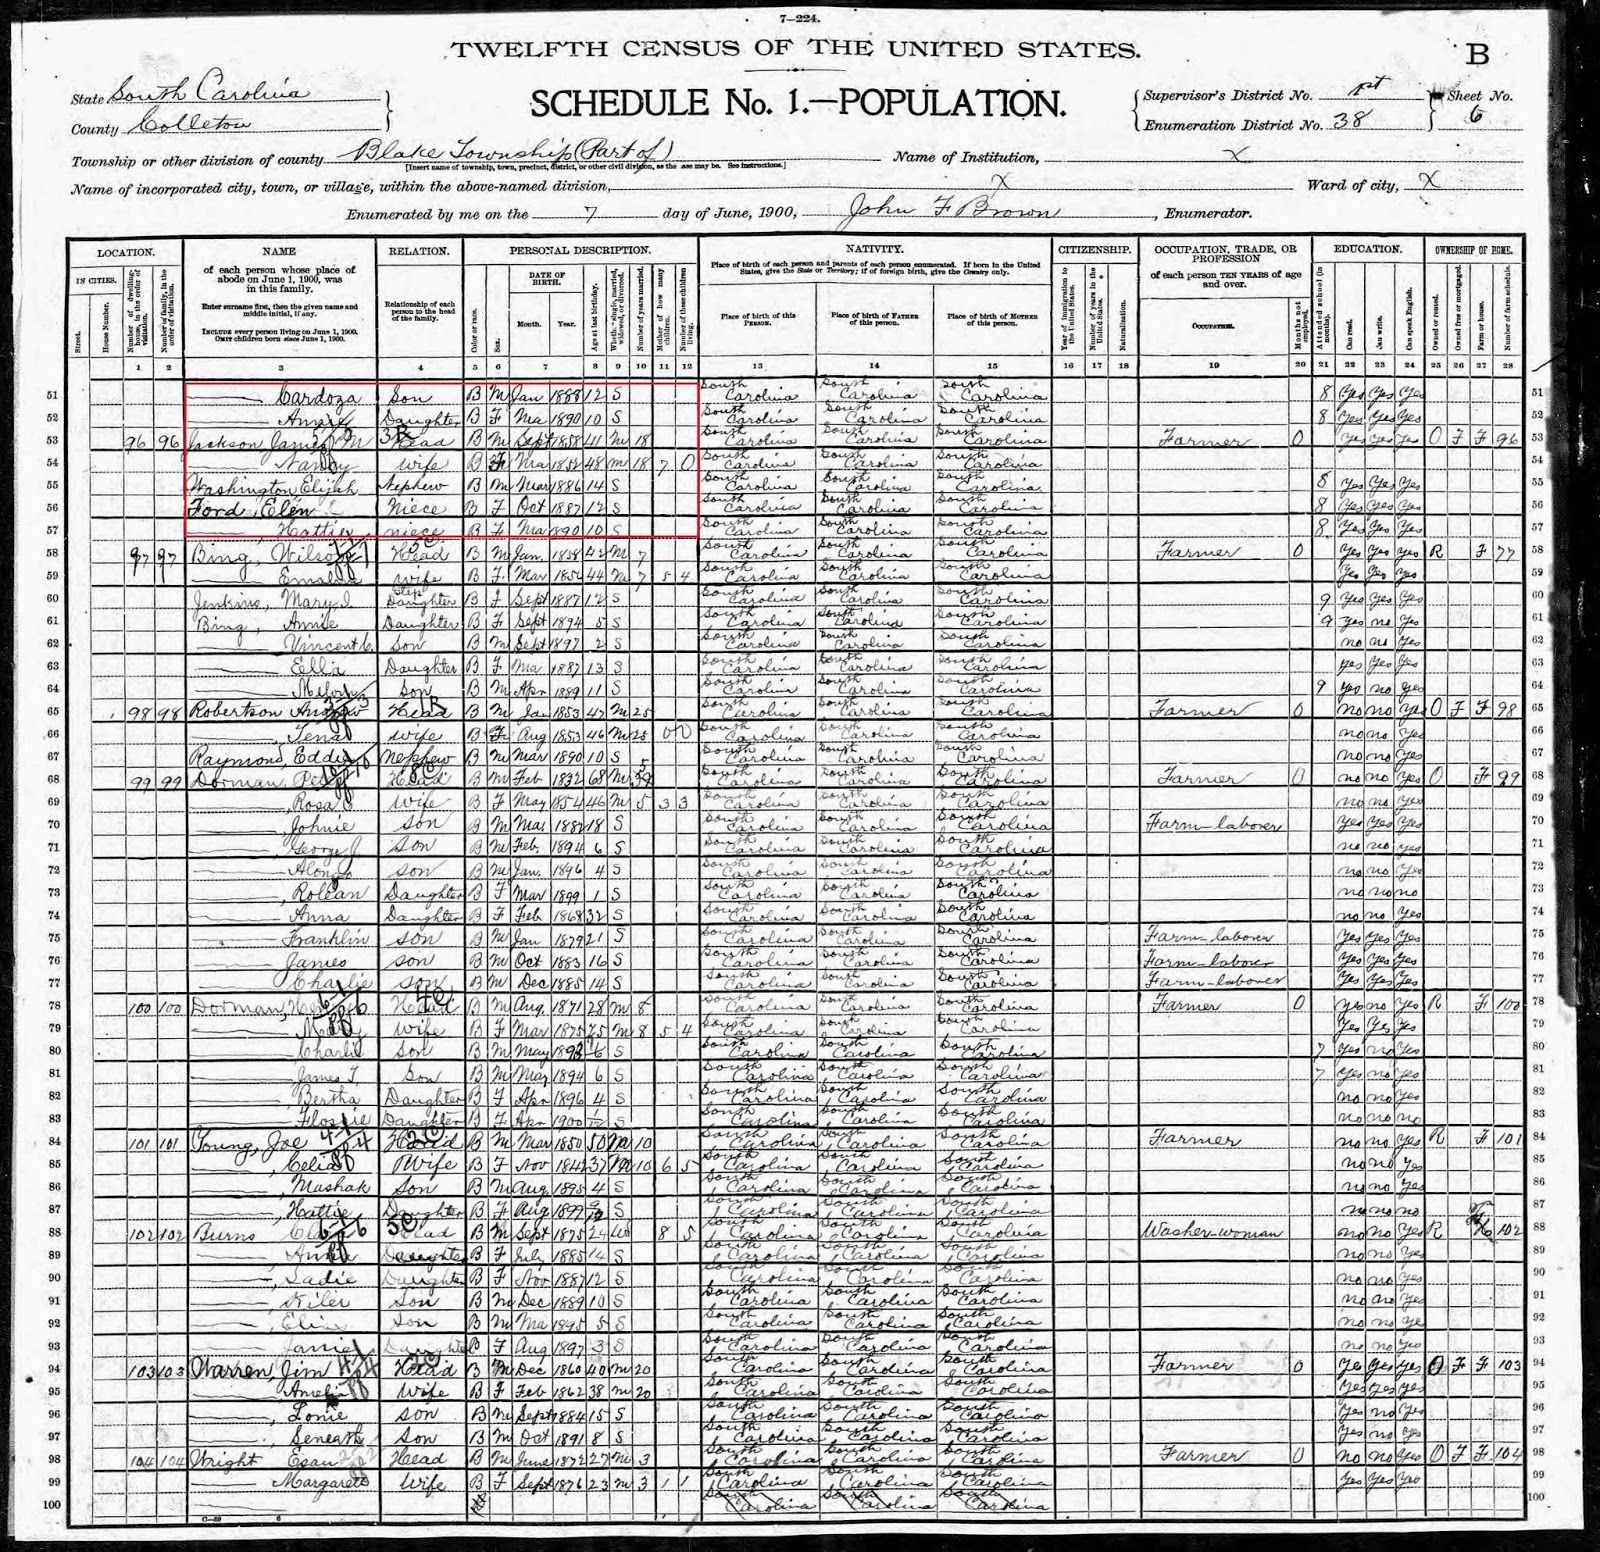 7—224.
TWELFTH CENSUS OF THE UNITED STATES.
B
State South Carolina
County Colleton
SCHEDULE No. 1.—POPULATION.
Supervisor's District No. 1st
Enumeration District No. 38
Sheet No.
6
Township or other division of county Blake Township (Part of)
[Insert name of township, town, precinct, district, or other civil division, as the case may be. See instructions.]
Name of Institution, X
Name of incorporated city, town, or village, within the above-named division, X
Ward of city, X
Enumerated by me on the 7 day of June, 1900, John F Brown, Enumerator.
LOCATION. NAME RELATION. PERSONAL DESCRIPTION. NATIVITY. CITIZENSHIP. OCCUPATION, TRADE, OR PROFESSION EDUCATION. OWNERSHIP OF HOME.
IN CITIES.
Street.
House Number.
Number of dwelling-house, in the order of visitation.
Number of family, in the order of visitation.
of each person whose place of abode on June 1, 1900, was in this family.
Enter surname first, then the given name and middle initial, if any.
INCLUDE every person living on June 1, 1900.
OMIT children born since June 1, 1900.
Relationship of each person to the head of the family.
Color or race.
Sex.
DATE OF BIRTH.
Month. Year.
Age at last birthday.
Whether single, married, widowed, or divorced.
Number of years married.
Mother of how many children.
Number of these children living.
Place of birth of each person and parents of each person enumerated. If born in the United States, give the State or Territory; if of foreign birth, give the Country only.
Place of birth of this PERSON.
Place of birth of FATHER of this person.
Place of birth of MOTHER of this person.
Year of immigration to the United States.
Number of years in the United States.
Naturalization.
of each person TEN YEARS of age and over.
OCCUPATION.
Months not employed.
Attended school (in months).
Can read.
Can write.
Can speak English.
Owned or rented.
Owned free or mortgaged.
Farm or house.
Number of farm schedule.
1 2 3 4 5 6 7 8 9 10 11 12 13 14 15 16 17 18 19 20 21 22 23 24 25 26 27 28
51 Cardoza Son B M Jan 1888 12 S South Carolina South Carolina South Carolina 8 Yes Yes Yes 51
52 Daughter B F Ma 1890 10 S South Carolina South Carolina South Carolina 8 Yes Yes Yes 52
53 96 96 Jackson James M Head B M Sept 1858 41 M 18 South Carolina South Carolina South Carolina Farmer 0 Yes Yes Yes O F F 96 53
54 Nancy Wife B F Ma 1852 48 M 18 7 0 South Carolina South Carolina South Carolina 54
55 Washington Elijah Nephew B M Mar 1886 14 S South Carolina South Carolina South Carolina 8 Yes Yes Yes 55
56 Ford, Elen Niece B F Oct 1887 12 S South Carolina South Carolina South Carolina 8 Yes Yes Yes 56
57 Hattie niece B F Ma 1890 10 S South Carolina South Carolina South Carolina 8 Yes Yes Yes 57
58 97 97 Bing, Wilson Head B M Jan 1858 42 M 7 South Carolina South Carolina South Carolina Farmer 0 Yes Yes Yes R F 77 58
59 Wife B F Mar 1856 44 M 7 5 4 South Carolina South Carolina South Carolina Yes Yes Yes 59
60 Jenkins, Mary I. Step Daughter B F Sept 1887 12 S South Carolina South Carolina South Carolina 9 Yes Yes Yes 60
61 Bing, Annie Daughter B F Sept 1894 5 S South Carolina South Carolina South Carolina 9 Yes no Yes 61
62 Vincent C. Son B M Sept 1897 2 S South Carolina South Carolina South Carolina no no Yes 62
63 Ellia Daughter B F Ma 1887 13 S South Carolina South Carolina South Carolina yes Yes Yes 63
64 Son B M Apr 1889 11 S South Carolina South Carolina South Carolina 9 Yes no Yes 64
65 98 98 Robertson Andrew Head B M Jan 1853 47 M 25 South Carolina South Carolina South Carolina Farmer 0 no no Yes O F F 98 65
66 Wife B F Aug 1853 46 M 25 0 0 South Carolina South Carolina South Carolina no no Yes 66
67 Raymond, Eddie Nephew B M Mar 1890 10 S South Carolina South Carolina South Carolina no no Yes 67
68 99 99 Dorman, Head B M Feb 1832 68 M South Carolina South Carolina South Carolina Farmer 0 no no Yes O F 99 68
69 Rosa Wife B F May 1854 46 M 5 3 3 South Carolina South Carolina South Carolina no no Yes 69
70 Johnie Son B M Mar 1882 18 S South Carolina South Carolina South Carolina Farm-laborer Yes Yes Yes 70
71 George J. Son B M Feb 1894 6 S South Carolina South Carolina South Carolina no no yes 71
72 Alonzo son B M Jan. 1896 4 S South Carolina South Carolina South Carolina no no Yes 72
73 Daughter B F Mar 1899 1 S South Carolina South Carolina South Carolina no no no 73
74 Anna Daughter B F Feb 1868 32 S South Carolina South Carolina South Carolina no no Yes 74
75 Franklin son B M Jan 1879 21 S South Carolina South Carolina South Carolina Farm-laborer Yes Yes Yes 75
76 James son B M Oct 1883 16 S South Carolina South Carolina South Carolina Farm-laborer Yes Yes Yes 76
77 Charlie son B M Dec 1885 14 S South Carolina South Carolina South Carolina Farm-laborer Yes Yes Yes 77
78 100 100 Dorman, Head B M Aug. 1871 28 M 8 South Carolina South Carolina South Carolina Farmer 0 yes no Yes R F 100 78
79 Mary Wife B F Mar 1875 25 M 8 5 4 South Carolina South Carolina South Carolina Yes Yes Yes 79
80 Charlie Son B M May 6 S South Carolina South Carolina South Carolina 7 Yes no Yes 80
81 James T. Son B M May 1894 6 S South Carolina South Carolina South Carolina 7 Yes no Yes 81
82 Bertha Daughter B F Apr 1896 4 S South Carolina South Carolina South Carolina no no Yes 82
83 Flossie Daughter B F Apr 1900 S South Carolina South Carolina South Carolina no no no 83
84 101 101 Young, Joe Head B M Mar 1850 50 M 10 South Carolina South Carolina South Carolina Farmer no no Yes R F 101 84
85 Celia Wife B F Nov 37 M 10 6 5 South Carolina South Carolina South Carolina no no Yes 85
86 Mashak Son B M Aug 1895 4 S South Carolina South Carolina South Carolina no no Yes 86
87 Hattie Daughter B F Aug 1899 S South Carolina South Carolina South Carolina no no no 87
88 102 102 Burns Head B M Sept 1875 24 Wd 8 5 South Carolina South Carolina South Carolina Washer-woman no no Yes R 102 88
89 Anna Daughter B F July 1885 14 S South Carolina South Carolina South Carolina no no Yes 89
90 Sadie Daughter B F Nov 1887 12 S South Carolina South Carolina South Carolina no no Yes 90
91 Son B M Dec 1889 10 S South Carolina South Carolina South Carolina no no Yes 91
92 Son B M Ma 1895 5 S South Carolina South Carolina South Carolina no no ye 92
93 Janie Daughter B F Aug 1897 3 S South Carolina South Carolina South Carolina no no Yes 93
94 103 103 Warren, Jim Head B M Dec 1860 40 M 20 South Carolina South Carolina South Carolina Farmer 0 Yes Yes Yes O F F 103 94
95 Amelia Wife B F Feb 1862 38 M 20 South Carolina South Carolina South Carolina Yes Yes Yes 95
96 Lonie son B M Sept 1884 15 S South Carolina South Carolina South Carolina Yes no Yes 96
97 Son B M Oct 1891 8 S South Carolina South Carolina South Carolina Yes no Yes 97
98 104 104 Wright Esau Head B M June 1872 27 M 3 South Carolina South Carolina South Carolina Farmer 0 no no Yes O F F 104 98
99 Margarett Wife B F Sept 1876 23 M 3 1 1 South Carolina South Carolina South Carolina Yes Yes Yes 99
100 South Carolina South Carolina South Carolina 100